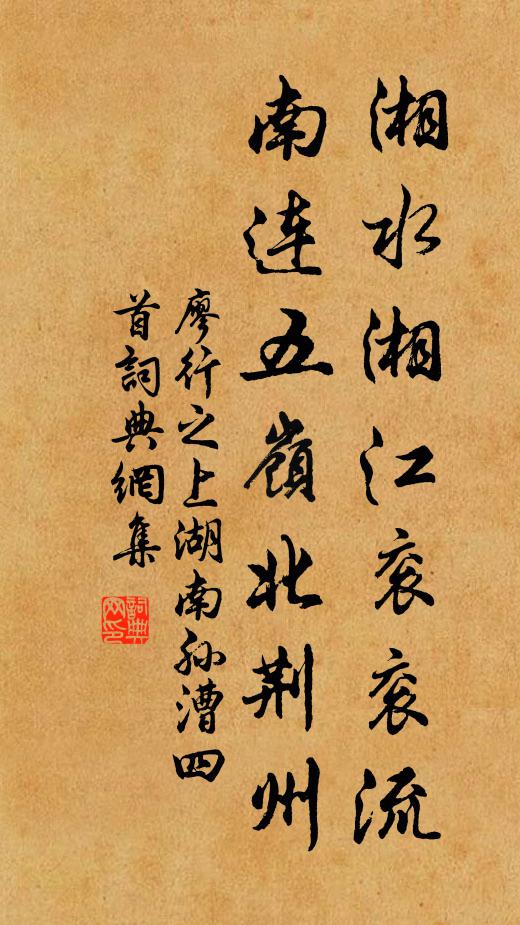 湘水湘江衮衮流
南連五嶺北荆州
廖行之上湖南孙漕四
首詞典網集
詞典网印